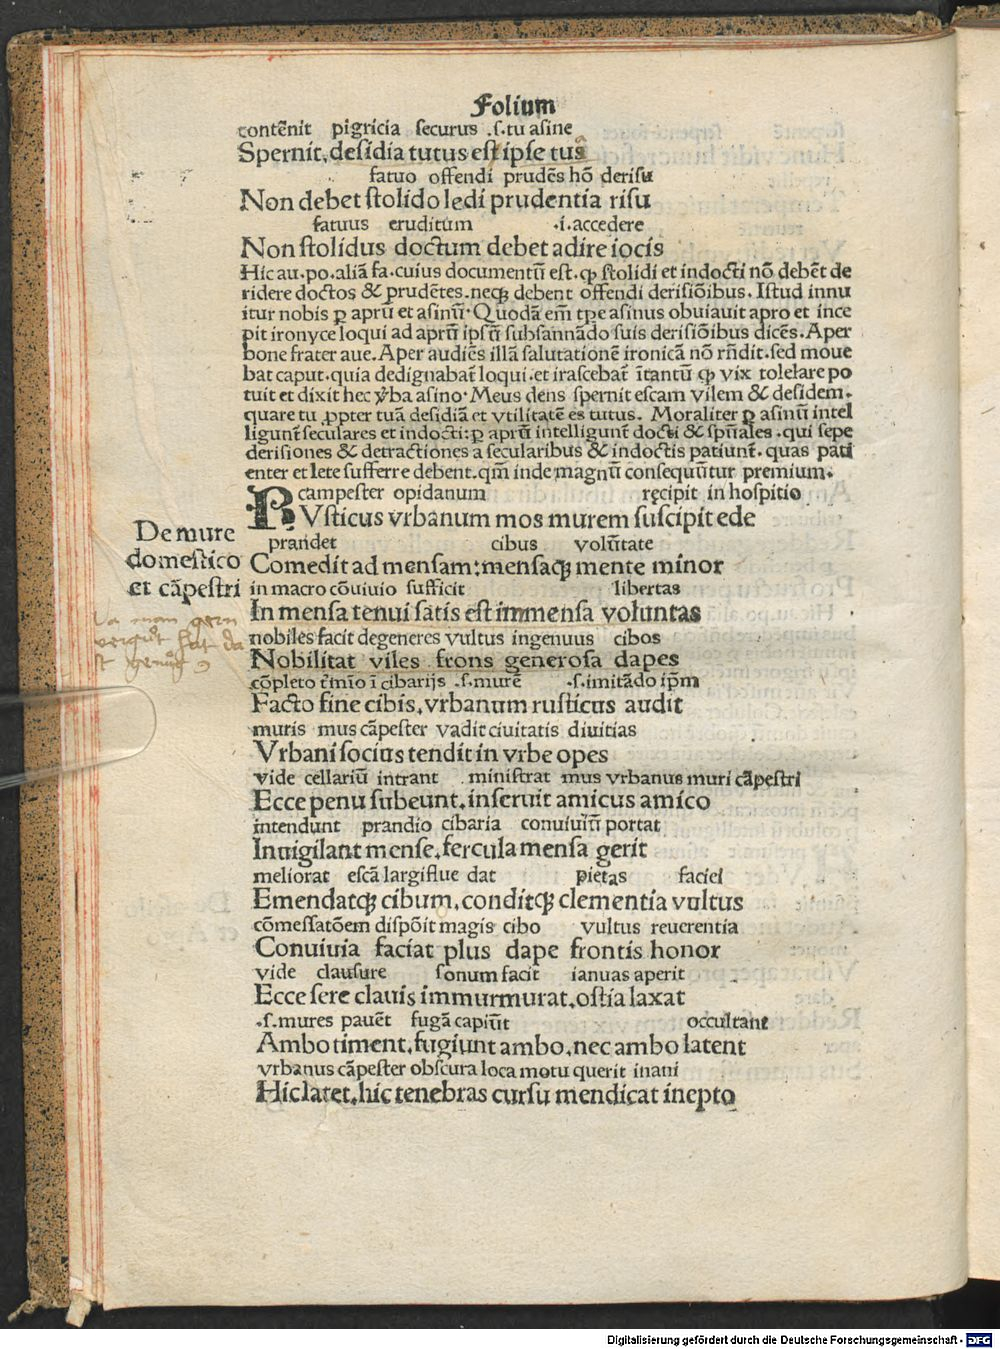 Folium
contēnit pigricia securus .s.tu asine
Spernit, desidia tutus est ipse tus
fatuo offendi prudēs hō derisu
Non debet stolido ledi prudentia risu
fatuus eruditum .i.accedere
Non stolidus doctum debet adire iocis
Hic au.po.aliā fa.cuius documentū est.ꝙ stolidi et indocti nō debēt de
ridere doctos & prudētes.neqꝫ debent offendi derisiōibus. Istud innu
itur nobis ꝑ aprū et asinū. Quodā em̄ tꝑe asinus obuiauit apro et ince
pit ironyce loqui ad aprū ipsū subsannādo suis derisiōibus dicēs. Aper
bone frater aue. Aper audiēs illā salutationē ironicā nō rñdit.sed moue
bat caput.quia dedignabat̄ loqui.et irascebat̄ ītantū ꝙ vix tolelare po
tuit et dixit hec v̄ba asino. Meus dens spernit escam vilem & desidem.
quare tu ꝓpter tuā desidiā et vtilitatē es tutus. Moraliter ꝑ asinū intel
ligunt̄ seculares et indocti: ꝑ aprū intelligunt̄ docti & spūales.qui sepe
derisiones & detractiones a secularibus & indoctis patiunt̄.quas pati
enter et lete sufferre debent.qm̄ inde magnū consequūtur premium.
campester opidanum recipit in hospitio
RVsticus vrbanum mos murem suscipit ede
De mure
domestico
et cāpestri
prandet cibus volūtate
Comedit ad mensam: mensaqꝫ mente minor
in macro cōuiuio sufficit libertas
In mensa tenui satis est immensa voluntas
nobiles facit degeneres vultus ingenuus cibos
Nobilitat viles frons generosa dapes
cōpleto t̄mīo ī cibarijs .s.murē .s.imitādo ip̄m
Facto fine cibis, vrbanum rusticus audit
muris mus cāpester vadit ciuitatis diuitias
Vrbani socius tendit in vrbe opes
vide cellariū intrant ministrat mus vrbanus muri cāpestri
Ecce penu subeunt, inseruit amicus amico
intendunt prandio cibaria conuiuiū portat
Inuigilant mense, fercula mensa gerit
meliorat escā largiflue dat pietas faciei
Emendatqꝫ cibum, conditqꝫ clementia vultus
cōmessatōem dispōit magis cibo vultus reuerentia
Conuiuia faciat plus dape frontis honor
vide clausure sonum facit ianuas aperit
Ecce sere clauis immurmurat, ostia laxat
.s.mures pauēt fugā capiūt occultant
Ambo timent, fugiunt ambo, nec ambo latent
vrbanus cāpester obscura loca motu querit inani
Hic latet, hic tenebras cursu mendicat inepto
Digitalisierung gefördert durch die Deutsche Forschungsgemeinschaft - DFG